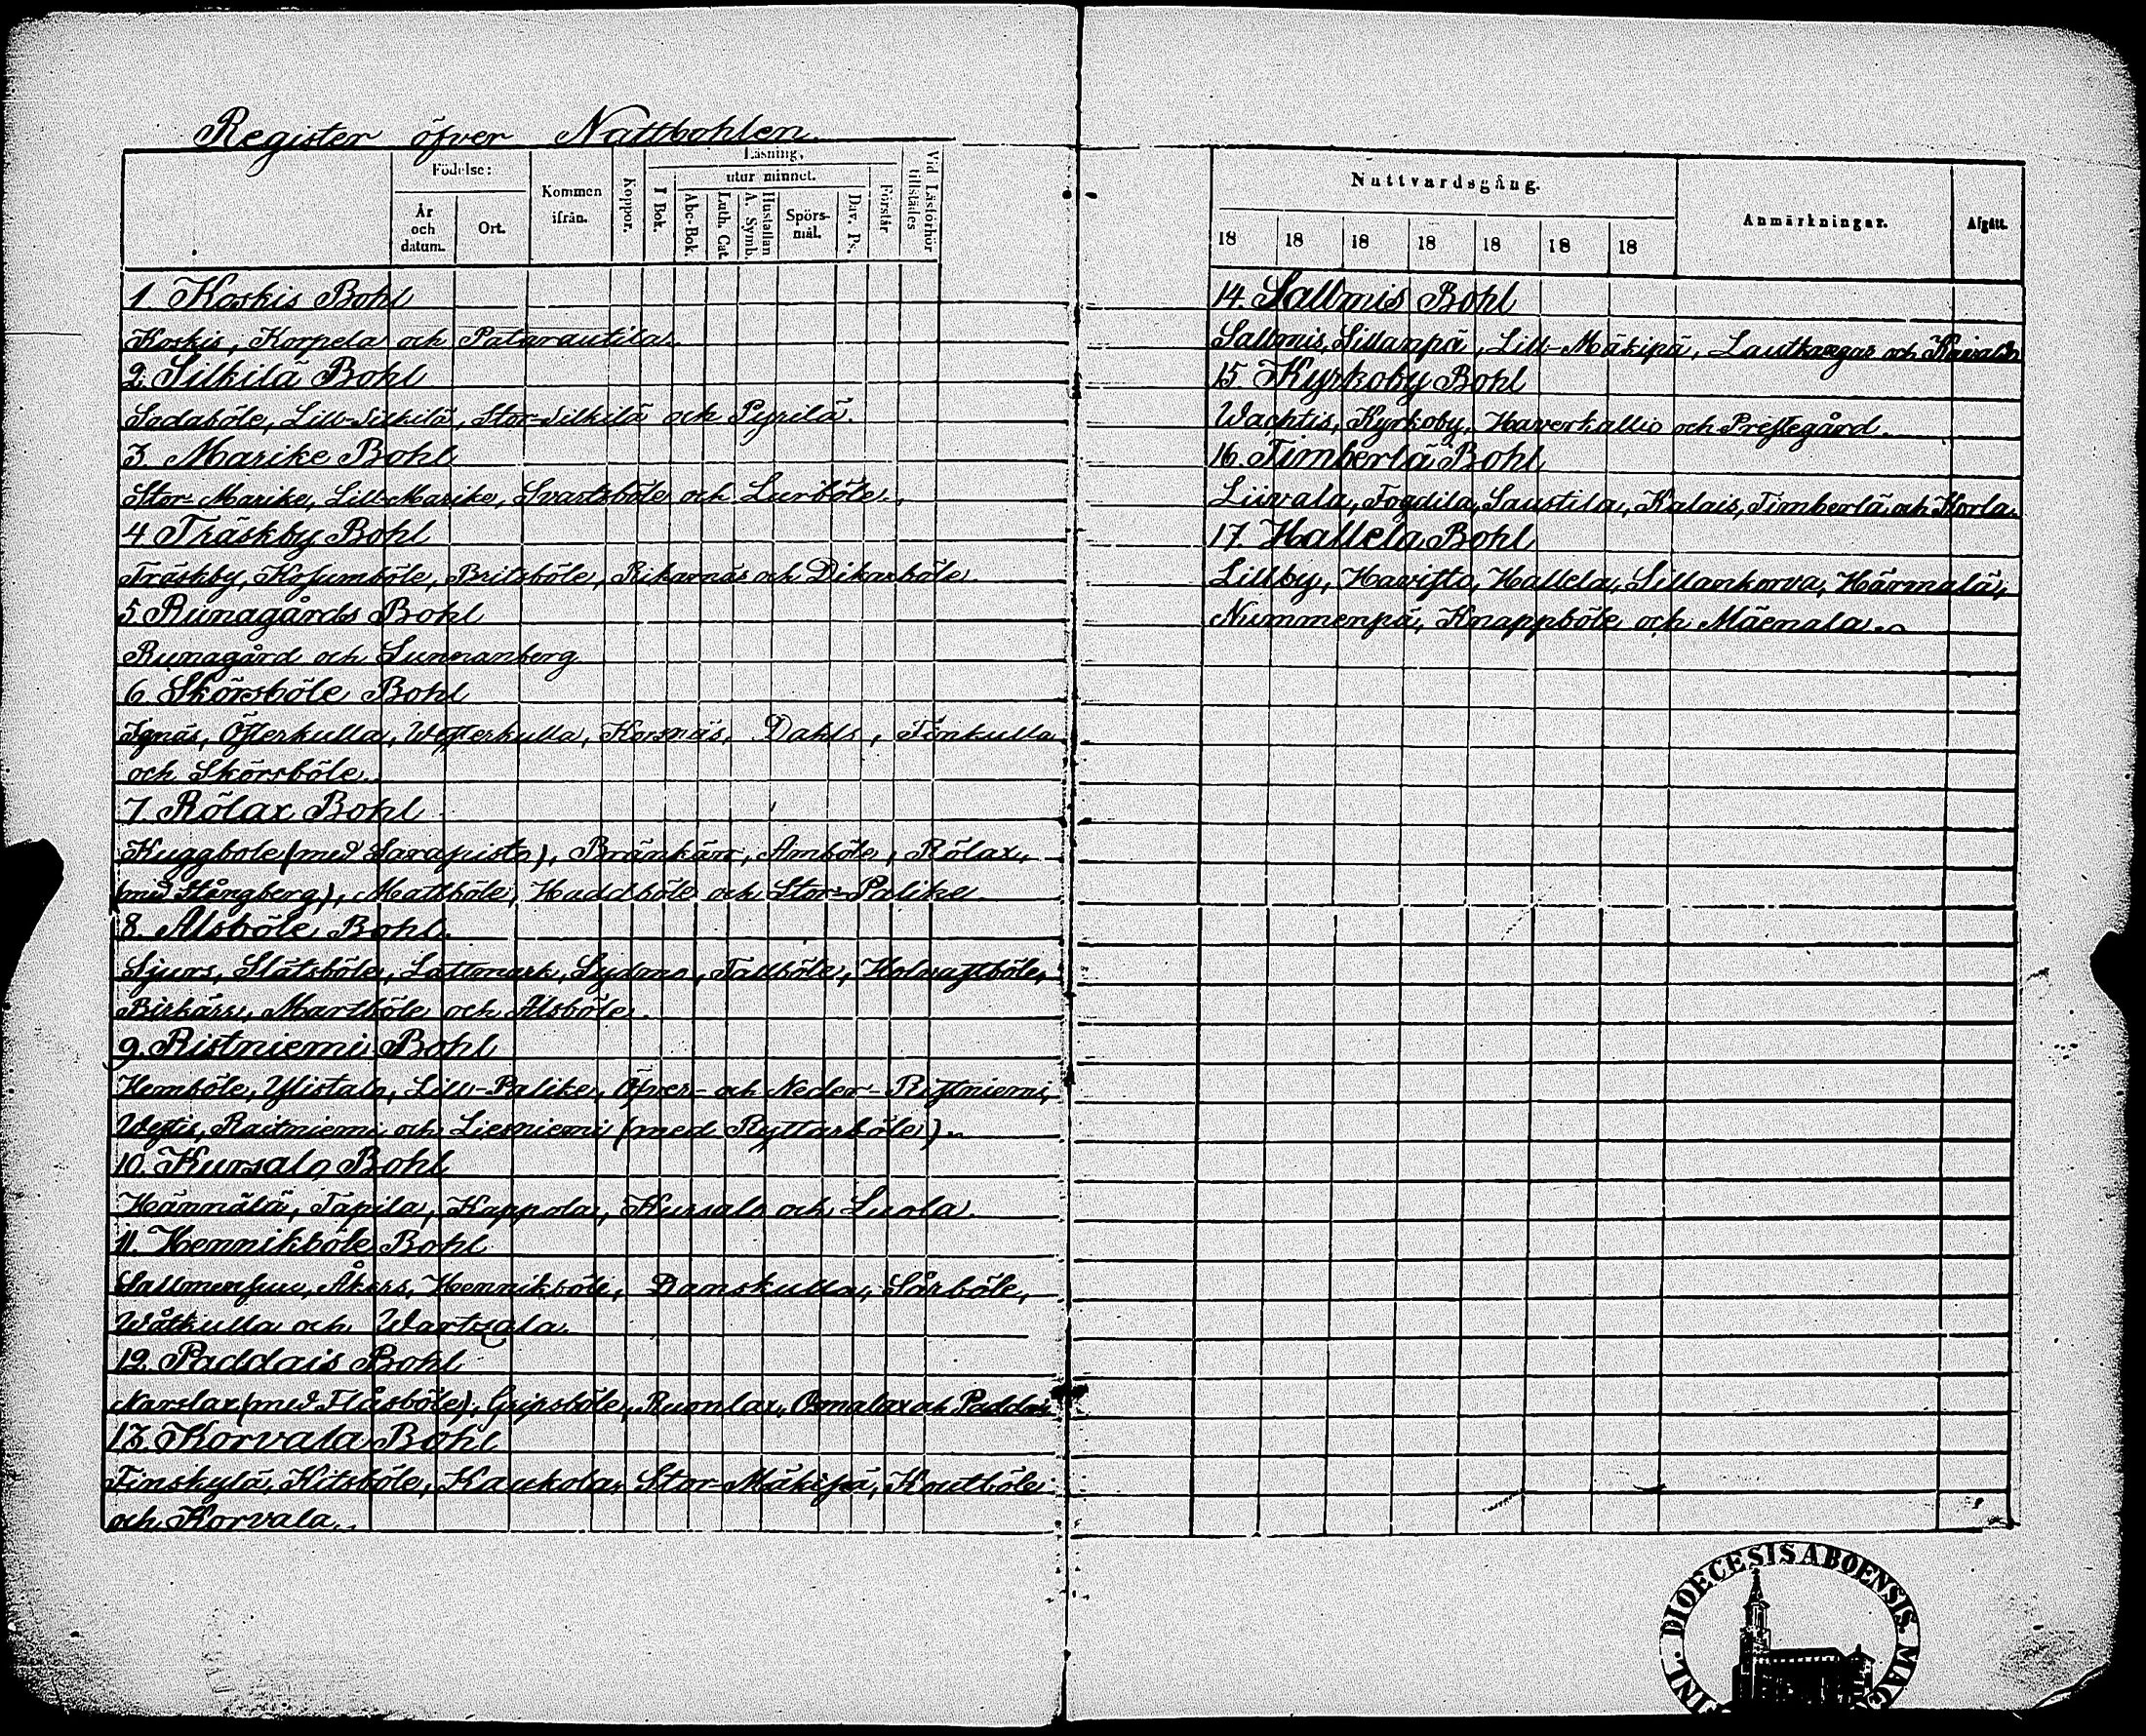 Register öfver Nattbohlen
Födelse:
År och datum.
Ort.
Kommen ifrån.
Koppor.
Läsning,
I Bok.
utur minnet.
Abc-Bok.
Luth. Cat.
Hustaflan A. Symb.
Spörs-mål.
Dav. Ps.
Förstår
Vid Läsförhör tillstädes
1. Koskis Bohl
Koskis, Korpela och Patarautila.
2. Silkilä Bohl
Sadaböle, Lill-Silkilä, Stor-Silkilä och Pyrilä.
3. Marike Bohl
Stor-Marike, Lill-Marike, Svartsböle och Lurböle.
4. Träskby Bohl
Träskby, Kosumböle, Britsböle, Rikarnäs och Dikarböle.
5. Runagårds Bohl
Runagård och Sunnanberg
6. Skörsböle Bohl
Ignäs, Österkulla, Westerkulla, Korsnäs, Dahls, Tönkulla
och Skörsböle.
7. Rölax Bohl
Kuggböle (med Sarapisto), Bränkärr, Amböle, Rölax,
(med Stångberg), Mattböle, Haddböle och Stor-Palike
8. Alsböle Bohl.
Sjurs, Slätsböle, Lattmark, Sydmo, Tallböle, Holmastböle,
Birkärr, Martböle och Alsböle.
9. Ristniemi Bohl
Hemböle, Ylistalo, Lill-Palike, Öfver- och Neder-Ristniemi,
Westis, Raitniemi och Liesniemi (med Ryttarböle).
10. Kursalo Bohl
Hännälä, Tapila, Kappola, Kursalo och Luola.
11. Hennikböle Bohl
Åkers, Hennikböle, Damskulla, Sårböle,
Wåtkulla och Wartsala.
12. Paddais Bohl
Karslax (med Flåsböle), Gripsböle, Ruonlax, Osmalax och Paddais
13. Korvala Bohl
Finskylä, Kitsböle, Kaukola, Stor-Mäkipä, Koutböle
och Korvala.
Nattvardsgång.
18 18 18 18 18 18 18
Anmärkningar.
Afgått.
14. Sallmis Bohl
Sallmis, Sillanpä, Lill-Mäkipä, Lautkangas och Kaivola
15. Kyrkoby Bohl
Wachtis, Kyrkoby, Haverkallio och Prästegård.
16. Timberlä Bohl
Liivala, Fogdila, Saustila, Kalais, Timberlä och Korla.
17. Hallela Bohl
Lillby, Hawisto, Hallela, Sillankorva, Härmälä,
Nummenpä, Knappböle och Mäenala.
INL. DIOECESIS ABOENSIS. MAG